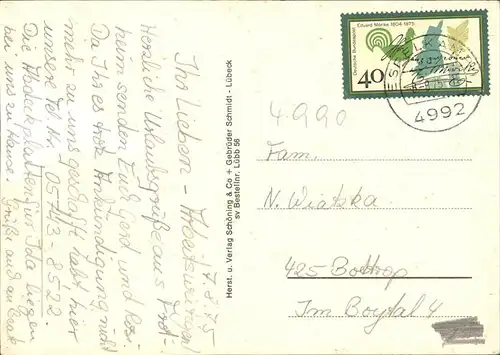 7.8.75
Ihr Lieben - Arbeitswütigen!
Herzliche Urlaubsgrüße aus Frot-
heim senden Euch Gerd und Rosi
Da Ihr es trotz Ankündigung nicht
mehr zu uns geschafft habt hier
unsere Tel Nr. 05743 - 8522.
Die Abdeckplatten für Ida liegen
bei uns zu Hause. Grüße auch an
Herst. u. Verlag Schöning & Co + Gebrüder Schmidt - Lübeck
sv Bestellnr. Lübb 56
Eduard Mörike 1804-1875
Deutsche Bundespost
40
ESPELKAMP
4992
4990
Fam.
N. Wiatzka
425 Bottrop
Im Boytal 4